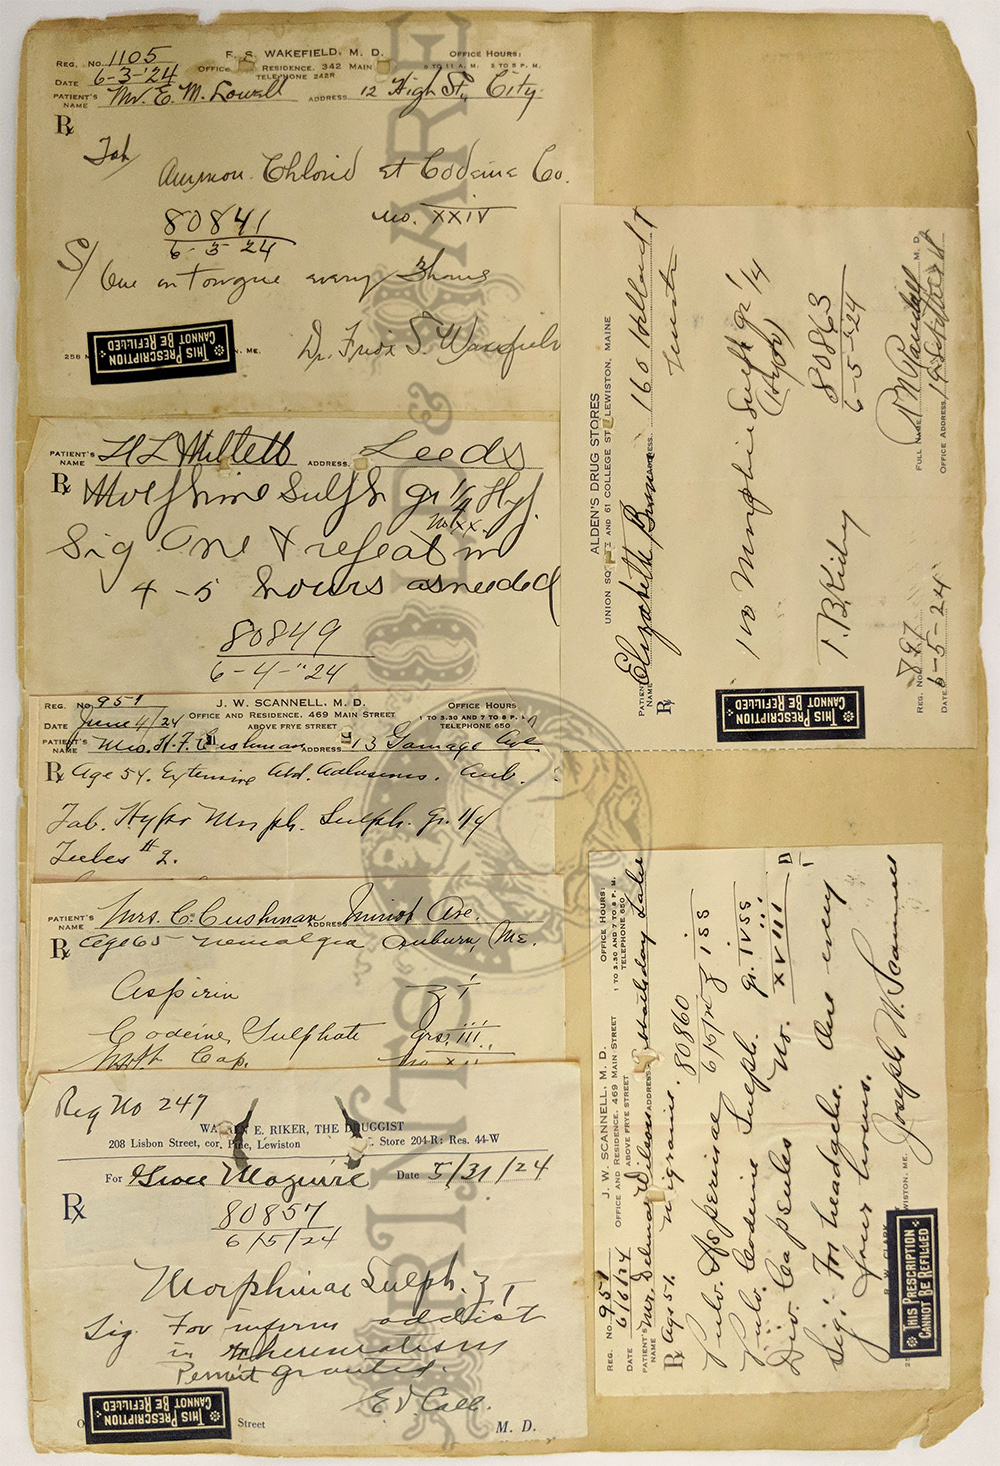 REG. No. 1105
F. S. WAKEFIELD, M. D.
OFFICE HOURS:
DATE 6-3-'24
OFFICE RESIDENCE, 342 MAIN
TO 11 A. M. TO 5 P. M.
TELEPHONE 242R
PATIENT'S NAME Mr. E. M. Lowell ADDRESS 12 High St., City.
Rx
Tab
Ammon. Chlorid et Codeine Co.
no. XXIV
80841
6-3-24
S/ One on Tongue every 3 hours
Dr. Fred S. Wakefield
258 M
, ME.
THIS PRESCRIPTION
CANNOT BE REFILLED
PATIENT'S NAME H L Millett ADDRESS Leeds
Rx Morphine Sulph gr 1/4 Hyp.
No XX.
Sig One & repeat in
4-5 hours as needed
80849
6-4-'24
REG. No. 951
J. W. SCANNELL, M. D.
OFFICE HOURS
DATE June 4/24
OFFICE AND RESIDENCE, 469 MAIN STREET
1 TO 3.30 AND 7 TO 8 P. M.
ABOVE FRYE STREET
TELEPHONE 650
PATIENT'S NAME Mrs. H. F. Cushman ADDRESS 13 Gamage Ave
Rx Age 54. Extensive Abd. Adhesions. Aub.
Tab. Hypo Morph. Sulph. gr. 1/4
Tubes # 2.
PATIENT'S NAME Mrs. C. Cushman ADDRESS Minot Ave.
Rx Age 65 neuralgia Auburn, Me.
Aspirin ʒ i
Codeine Sulphate Grs. iii
Cap. No. XII
Reg No 247
WA E. RIKER, THE DRUGGIST
208 Lisbon Street, cor. Pine, Lewiston
Store 204-R; Res. 44-W
For Grace Maguire Date 5/31/24
Rx
80857
6/5/24
Morphinae Sulph. ʒ I
Sig. For infirm addict
in
Permit granted.
E V Call.
THIS PRESCRIPTION
CANNOT BE REFILLED
O
Street
M. D.
ALDEN'S DRUG STORES
UNION SQ AND 61 COLLEGE ST., LEWISTON, MAINE
PATIENT'S NAME Elizabeth Brown ADDRESS 160 Holland St
Rx
100 Morphine Sulph gr 1/4
(Hypo)
T. B. Kirby
80863
6-5-24
REG. NO. 797
FULL NAME Randall M. D.
DATE 6-5-24
OFFICE ADDRESS
THIS PRESCRIPTION
CANNOT BE REFILLED
REG. No. 951
J. W. SCANNELL, M. D.
OFFICE HOURS:
DATE 6/6/24
OFFICE AND RESIDENCE, 469 MAIN STREET
1 TO 3.30 AND 7 TO 8 P. M.
ABOVE FRYE STREET
TELEPHONE 650
PATIENT'S NAME Mr. Delmar Wilson ADDRESS
Rx Age 51. Migraine.
80860
6/5/24
Pulv. Asperinae ʒ iss
Pulv. Codeine Sulph. gr. IVss
Div. Capsules No. XVIII
Sig: For headache. One every
four hours.
Joseph W. Scannell
M. D.
WISTON, ME.
THIS PRESCRIPTION
CANNOT BE REFILLED
PRINTS OLD & RARE